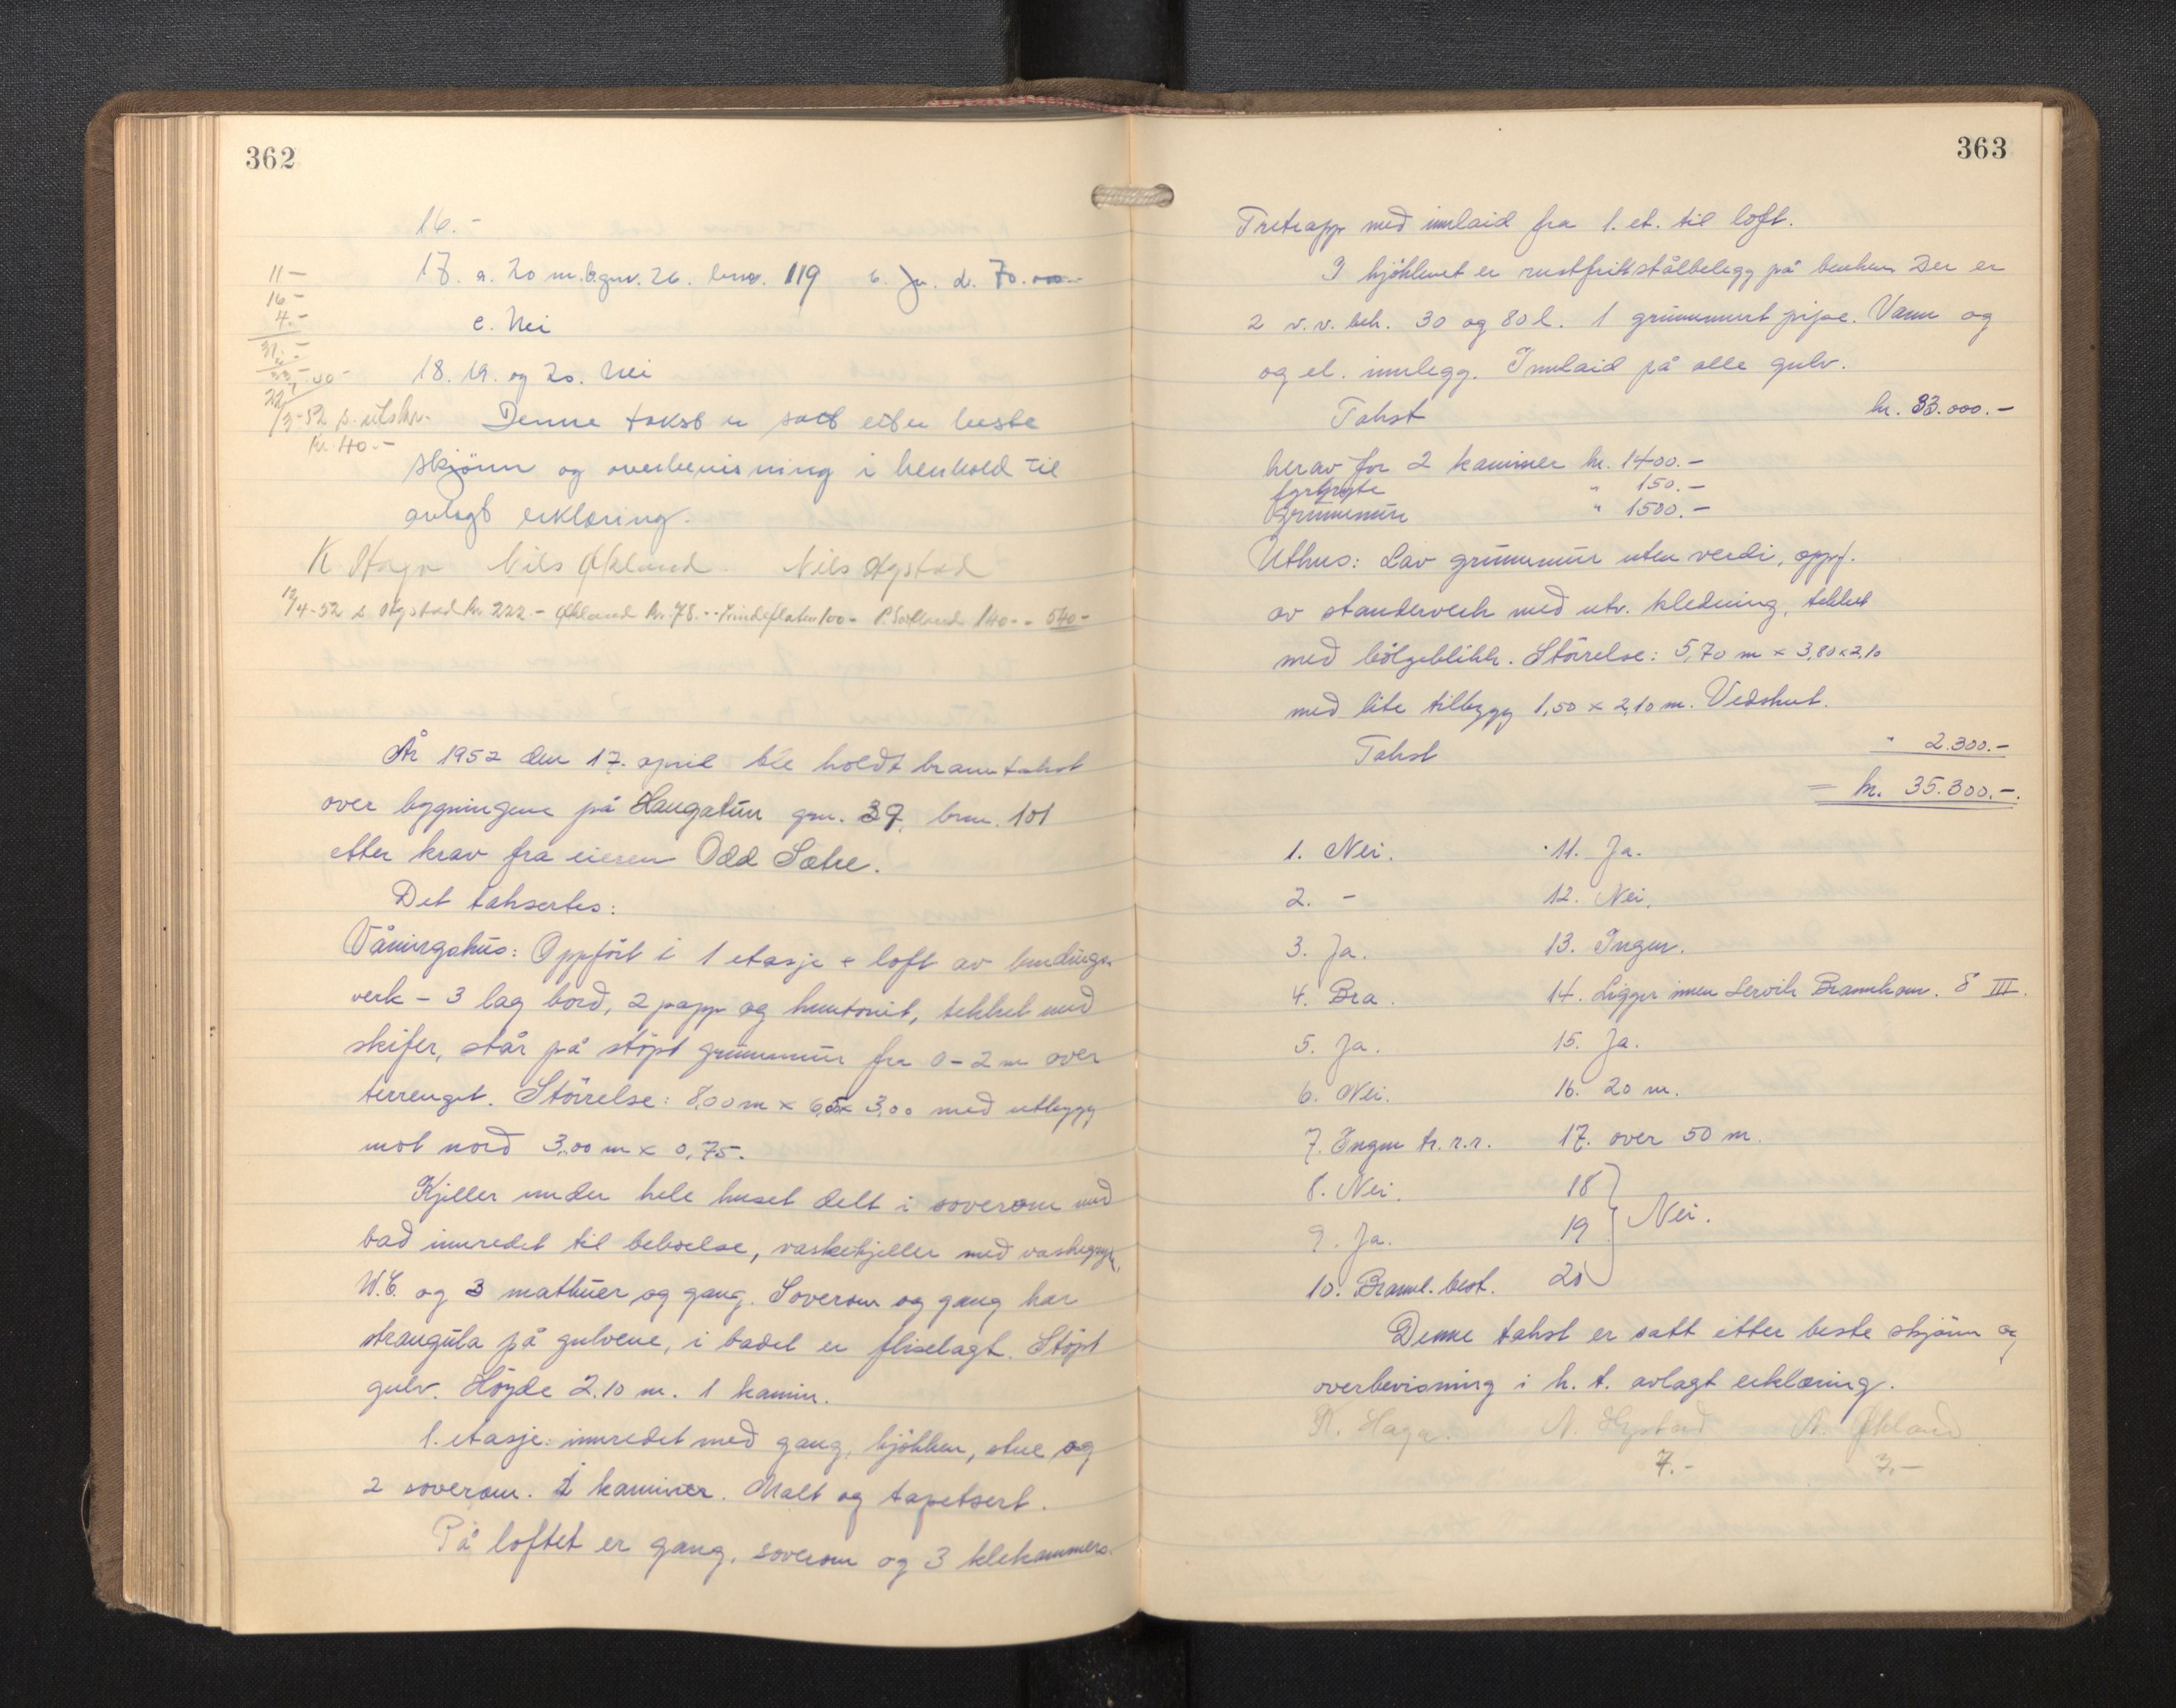 362
16.-
17. a. 20 m. b. gnr. 26. bnr. 119 b. Ja. d. 70.000.-
c. Nei
18. 19. og 20. Nei
11 -
16 -
4.-
31.-
22/3-52 s. utskr.
Kr. 40.-
Denne takst er satt etter beste
skjönn og overbevisning i henhold til
avlagt erklæring.
K Haga Nils Økland. Nils Hystad
12/4-52 s. Hystad kr 222.- Økland kr. 78.-- Trindeflaten 100- P. Sætland 140-- 540-
År 1952 den 17. april ble holdt branntakst
over bygningene på Haugatun gnr. 39, bnr. 101
etter krav fra eieren Odd Sætre.
Det taksertes:
Våningshus: Oppfört i 1 etasje + loft av bindings-
verk - 3 lag bord, 2 papp og huntonit, tekket med
skifer, står på stöpt grunnmur fra 0-2 m over
terrenget. Störrelse: 8,00 m x 6,5x 3,00 med utbygg
mot nord 3,00 m x 0,75.
Kjeller under hele huset delt i soverom med
bad innredet til beboelse, vaskekjeller med vaskegryte,
W.C. og 3 matbuer og gang. Soverom og gang har
strangula på gulvene, i badet er fliselagt. Stöpt
gulv. Höyde 2.10 m. 1 kamin.
1. etasje: innredet med gang, kjökken, stue og
2 soverom. 1 kaminer. Malt og tapetsert.
På loftet er gang, soverom og 3 klekammers.
363
Tretrapp med innlaid fra 1. et. til loft.
I kjökkenet er rustfritt stålbelegg på benken Der er
2 v.v. beh. 30 og 80 l. 1 grunnmurt pipe. Vann og
og el. innlegg. Innlaid på alle gulv.
Takst kr. 33.000.-
herav for 2 kaminer kr. 1400.-
fyrgryte " 150.-
Grunnmur " 1500.-
Uthus: Lav grunnmur uten verdi, oppf.
av standerverk med utv. kledning, tekket
med bölgeblikk. Störrelse: 5,70 m x 3,80 x 2,10
med lite tilbygg 1,50 x 2,10 m. Vedskut.
Takst " 2.300.-
= kr. 35.300.-.
1. Nei. 11. Ja.
2. - 12. Nei.
3. Ja. 13. Ingen.
4. Bra. 14. Ligger innen Lervik Brannkom. § III.
5. Ja. 15. Ja.
6. Nei. 16. 20 m.
7. Ingen tr.r.r. 17. over 50 m.
8. Nei. 18
9. Ja. 19 } Nei.
10. Brannl. best. 20
Denne takst er satt etter beste skjönn og
overbevisning i h. t. avlagt erklæring.
K. Haga. N. Hystad N. Økland
7.- 7.-